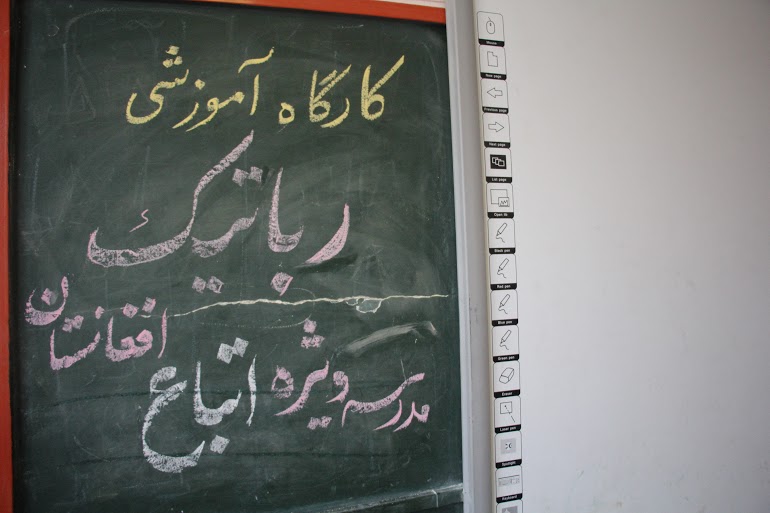 کارگاه آموزشی
رباتیک
مدرسه ویژه اتباع افغانستان
Mouse
New page
Previous page
Next page
List page
Open file
Black pen
Red pen
Blue pen
Green pen
Eraser
Laser pen
Spotlight
Keyboard